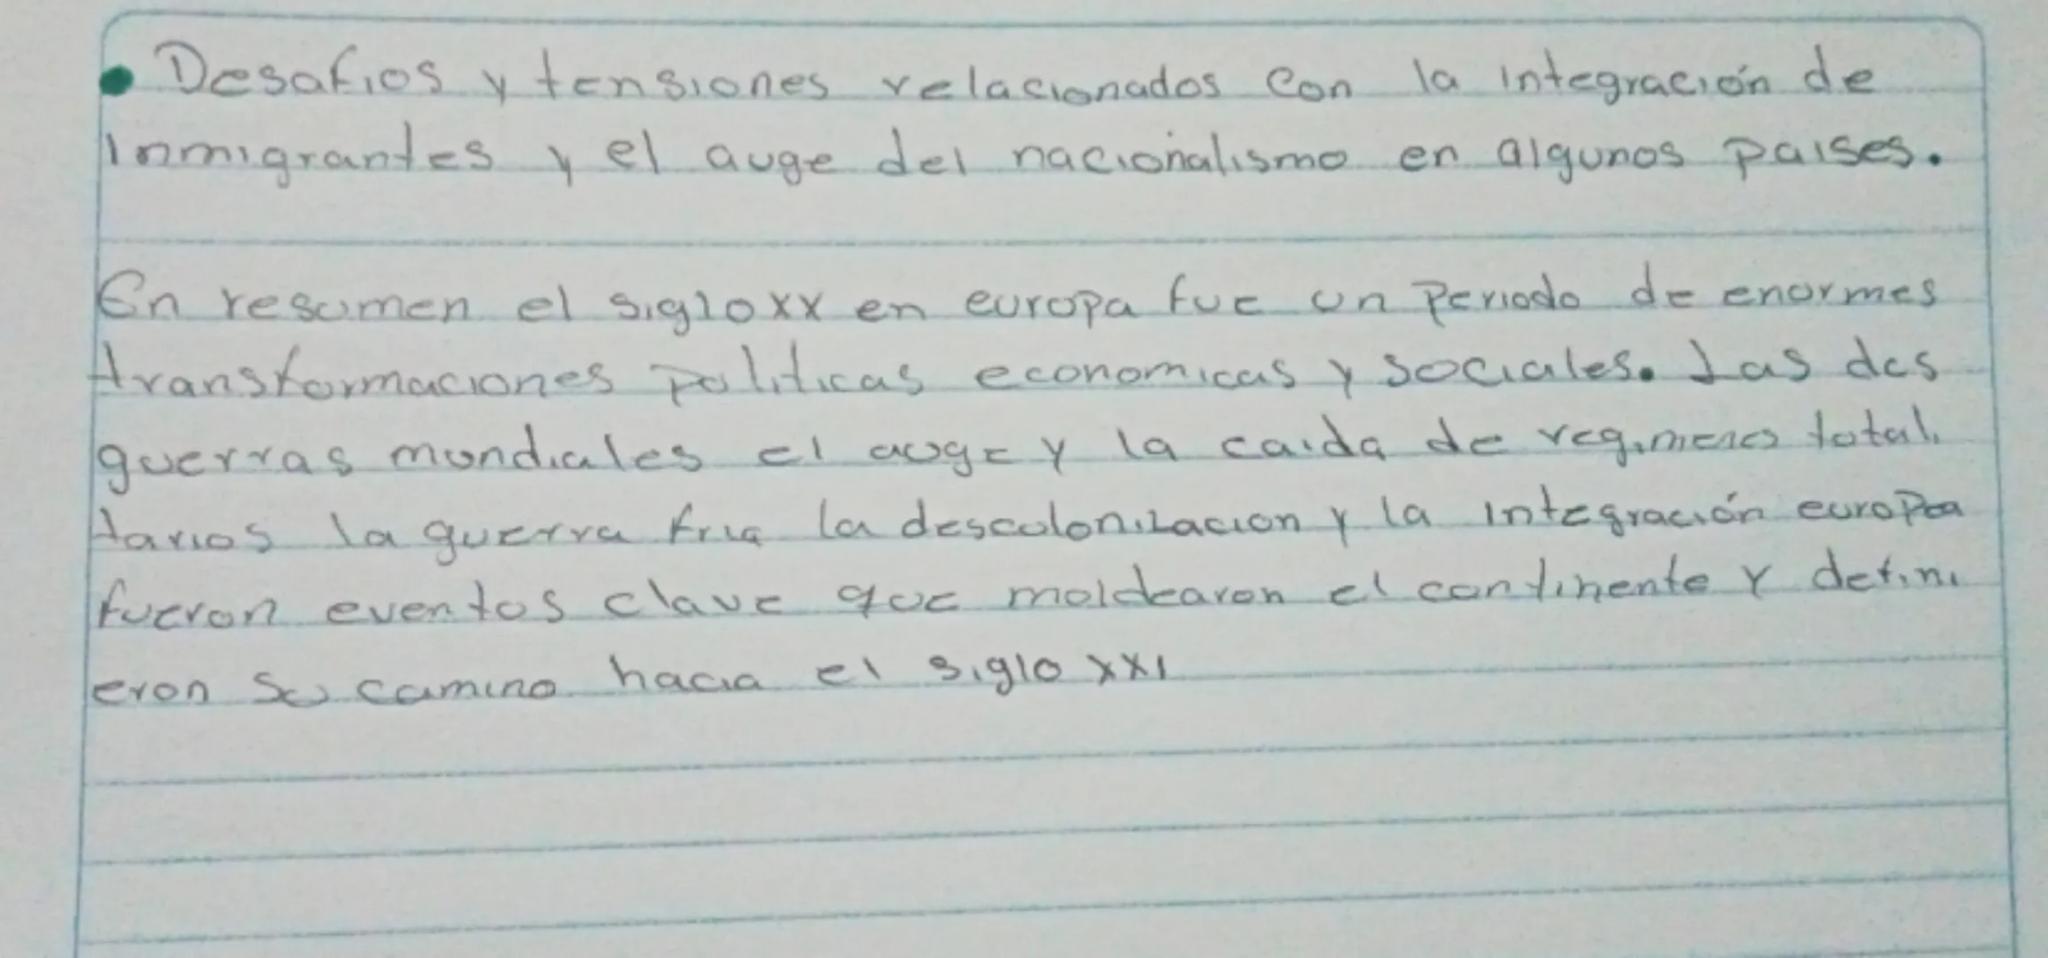 • Desafios y tensiones relacionados con la integración de
inmigrantes y el auge del nacionalismo en algunos paises.
En resumen el siglo xx en europa fue un periodo de enormes
transformaciones politicas economicas y sociales. Las dos
guerras mundiales el auge y la caida de regimenes totali
tarios la guerra fria la descolonizacion y la integración europea
fueron eventos clave que moldearon el continente y defini
eron su camino hacia el siglo xxi